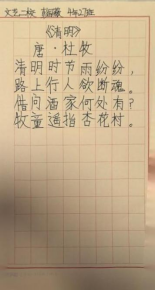 文艺二校 四年2班
《清明》
唐·杜牧
清明时节雨纷纷，
路上行人欲断魂。
借问酒家何处有？
牧童遥指杏花村。